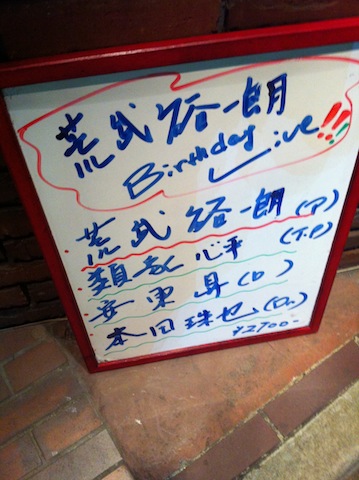 荒武裕一朗
Birthday Live!!
荒武裕一朗(P)
類家心平(T.P)
安東昇(b)
本田珠也(Dr.)
¥2700-